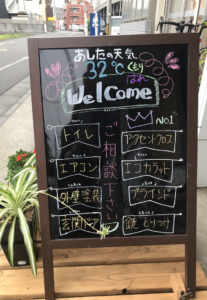 あしたの天気
32℃ くもり
はれ
Welcome
No1
トイレ
アクセントクロス
エアコン
エコカラット
外壁塗装
ブラインド
玄関ドア
鏡 とりつけ
ご相談下さい